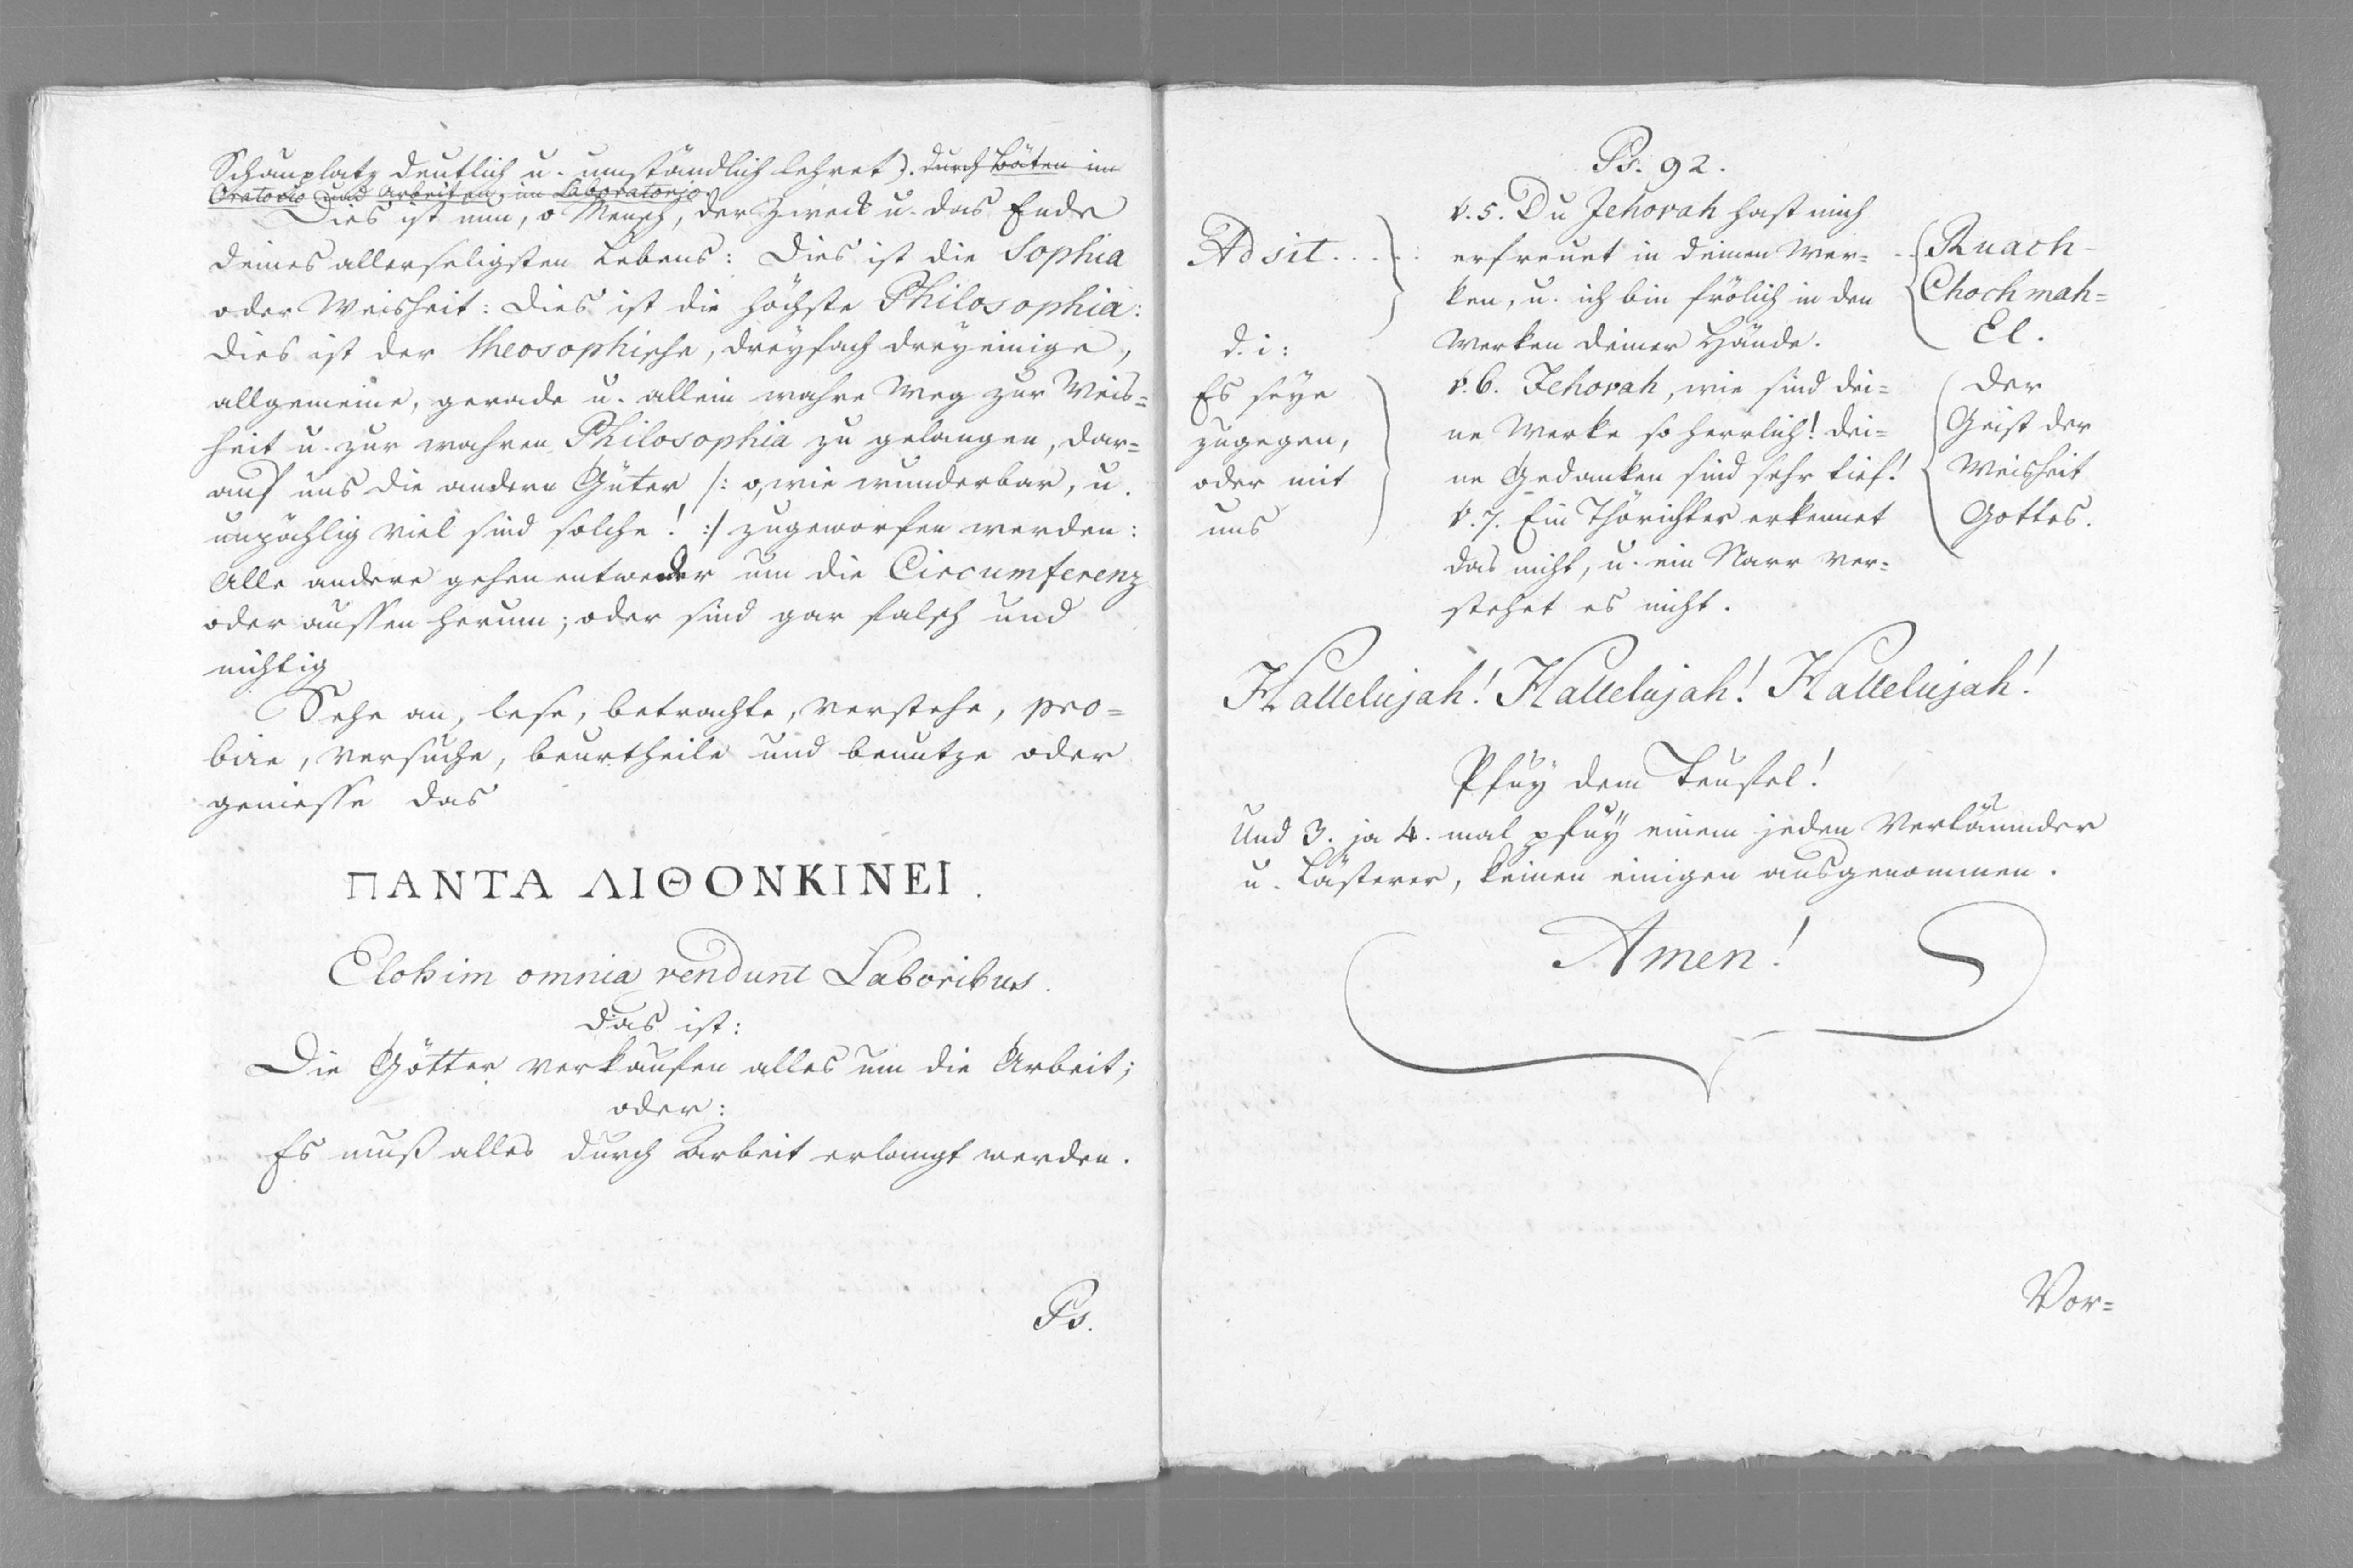 Schauplatz deutlich u. umständlich lehret). durch Bäten im
Oratorio und Arbeiten im Laboratorjo.
Dies ist nun, o Mensch, der Zweck u. das Ende
deines allerseligsten Lebens: Dies ist die Sophia
oder Weisheit: Dies ist die höchste Philosophia:
dies ist der theosophische, dreyfach dreyeinige,
allgemeine, gerade u. allein wahre Weg zur Weis=
heit u. zur wahren Philosophia zu gelangen, dar=
auf uns die andern Güter /: o, wie wunderbar, u.
unzählig viel sind solche! :/ zugeworfen werden:
Alle andere gehen entweder um die Circumferenz
oder aussen herum; oder sind gar falsch und
nichtig
Sehe an, lese, betrachte, verstehe, pro=
bire, versuche, beurtheile und benutze oder
geniesse das
ΠΑΝΤΑ ΛΙΘΟΝΚΙΝΕΙ.
Elohim omnia vendunt Laboribus.
das ist:
Die Götter verkaufen alles um die Arbeit;
oder:
Es muß alles durch Arbeit erlangt werden.
Ps.
Ps. 92.
v. 5. Du Jehovah hast mich
Adsit... erfreuet in deinen Wer= .. Ruach-
ken, u. ich bin frölich in den Chochmah=
d. i: Werken deiner Hände. El.
Es seye v. 6. Jehovah, wie sind dei= der
zugegen, ne Werke so herrlich! dei= Geist der
oder mit ne Gedanken sind sehr tief! Weisheit
uns v. 7. Ein Thörichter erkennet Gottes.
das nicht, u. ein Narr ver=
stehet es nicht.
Hallelujah! Hallelujah! Hallelujah!
Pfuy dem Teufel!
Und 3. ja 4. mal pfuy einem jeden Verläumder
u. Lästerer, keinen einigen ausgenommen.
Amen!
Vor=